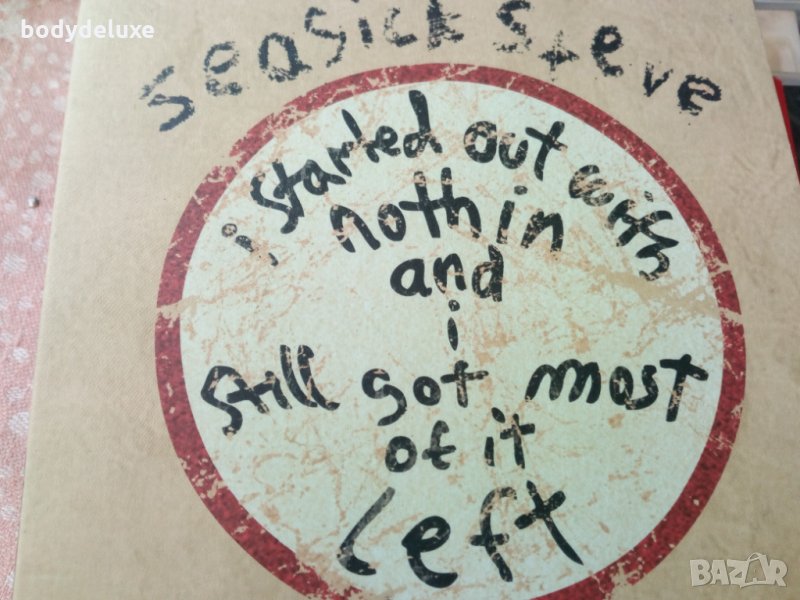 bodydeluxe
seasick steve
i started out with
nothin
and
i
still got most
of it
left
BAZAR